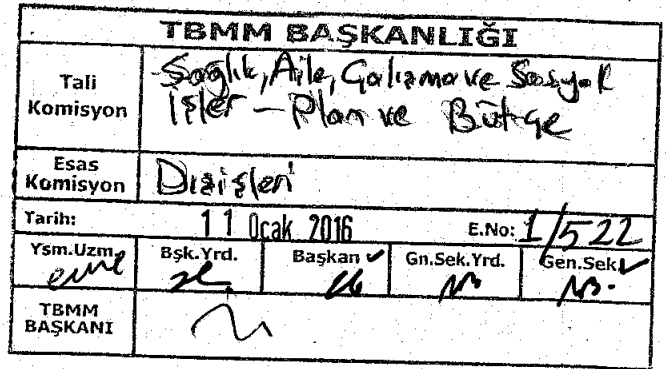 TBMM BAŞKANLIĞI
Tali Komisyon
- Sağlık, Aile, Çalışma ve Sosyal
İşler - Plan ve Bütçe
Esas Komisyon
Dışişleri
Tarih: 11 Ocak 2016 E.No: 1/522
Ysm.Uzm. Bşk.Yrd. Başkan ✓ Gn.Sek.Yrd. Gen.Sek ✓
TBMM BAŞKANI